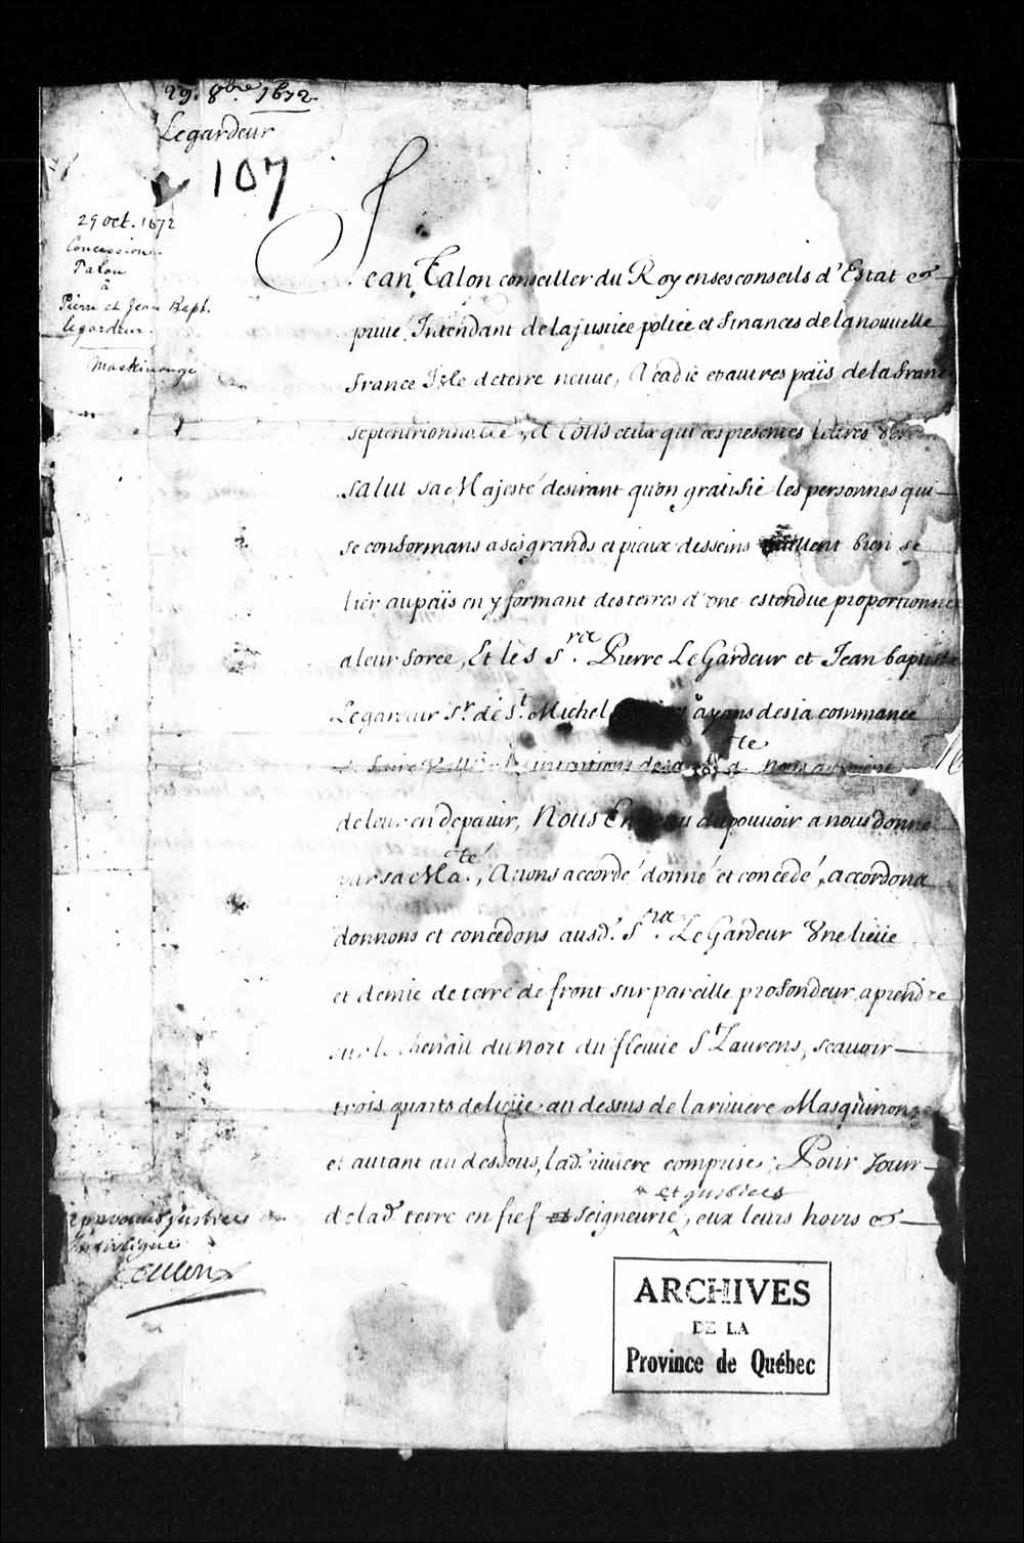 29. 8bre 1672
Legardeur
107
29 oct. 1672
Concession
Talon
à
Pierre et Jean Bapt.
legardeur
Maskinongé
Jean Talon conseiller du Roy en ses conseils d'Estat &
privé Intendant de la justice police et finances de la nouvelle
france Isle de terre neuve, Acadie et autres païs de la france
septentrionnalle, A tous ceux qui ces presentes lettres
salut sa Majesté desirant qu'on gratifie les personnes qui
se conformans a ses grands et pieux desseins veullent bien se
lier au païs en y formant des terres d'une estendue proportionnée
a leur force, Et les Srs. Pierre LeGardeur et Jean baptiste
Legardeur Sr. de St. Michel ayans desia commancé
de faire valloir les intentions de sa Mate
de leur en departir, Nous En du pouvoir a nous donné
par sa Maté, Avons accordé donné et concedé, accordons
donnons et concedons ausd. Srs. LeGardeur Une lieüe
et demie de terre de front sur pareille profondeur, a prendre
sur le chenail du nort du fleuve St Laurens, scavoir
trois quarts de lieüe au dessus de la riviere Masquinongé
et autant au dessous, lad. riviere comprise; Pour Jouir
et justices
de lad. terre en fief et seigneurie, eux leurs hoirs &
approuvé justices
Talon
ARCHIVES
DE LA
Province de Québec